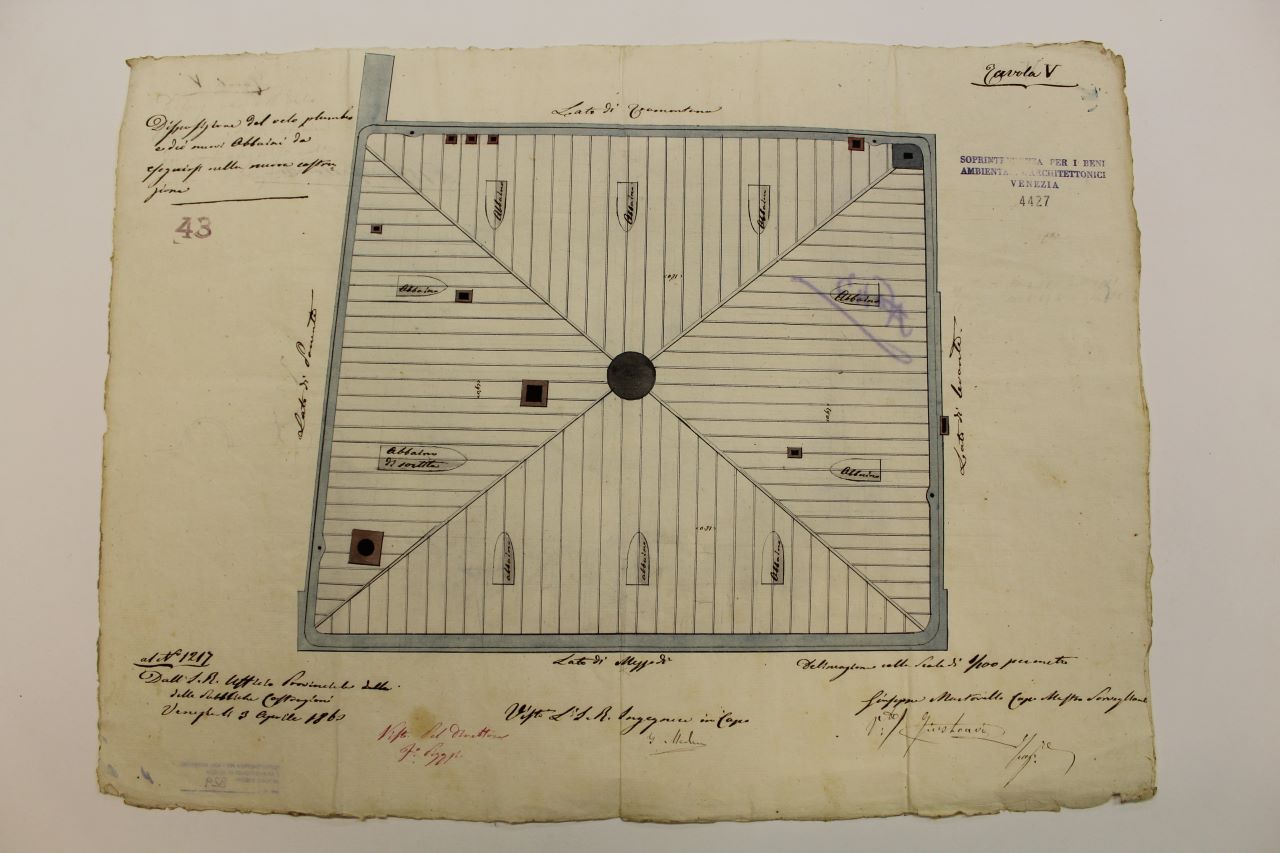 Tavola V
Lato di Tramontana
Disposizione del velo plumbeo
e dei nuovi Abbaini da
eseguirsi nella nuova costru-
zione
43
SOPRINTENDENZA PER I BENI
AMBIENTALI ARCHITETTONICI
VENEZIA
4427
Abbaino
Abbaino
Abbaino
Abbaino
Abbaino
Lato di Ponente
Lato di levante
Abbaino
di sortita
Abbaino
abbaino
abbaino
Abbaino
Lato di Mezzodì
al N.º 1217
Dall'I. R. Ufficio Provinciale delle
delle Pubbliche Costruzioni
Venezia li 3 Aprile 186
Visto Del Direttore
Visto L'I. R. Ingegnere in Capo
Delineazione nella Scala di 1/100 per metro
Giuseppe Capo Mastro